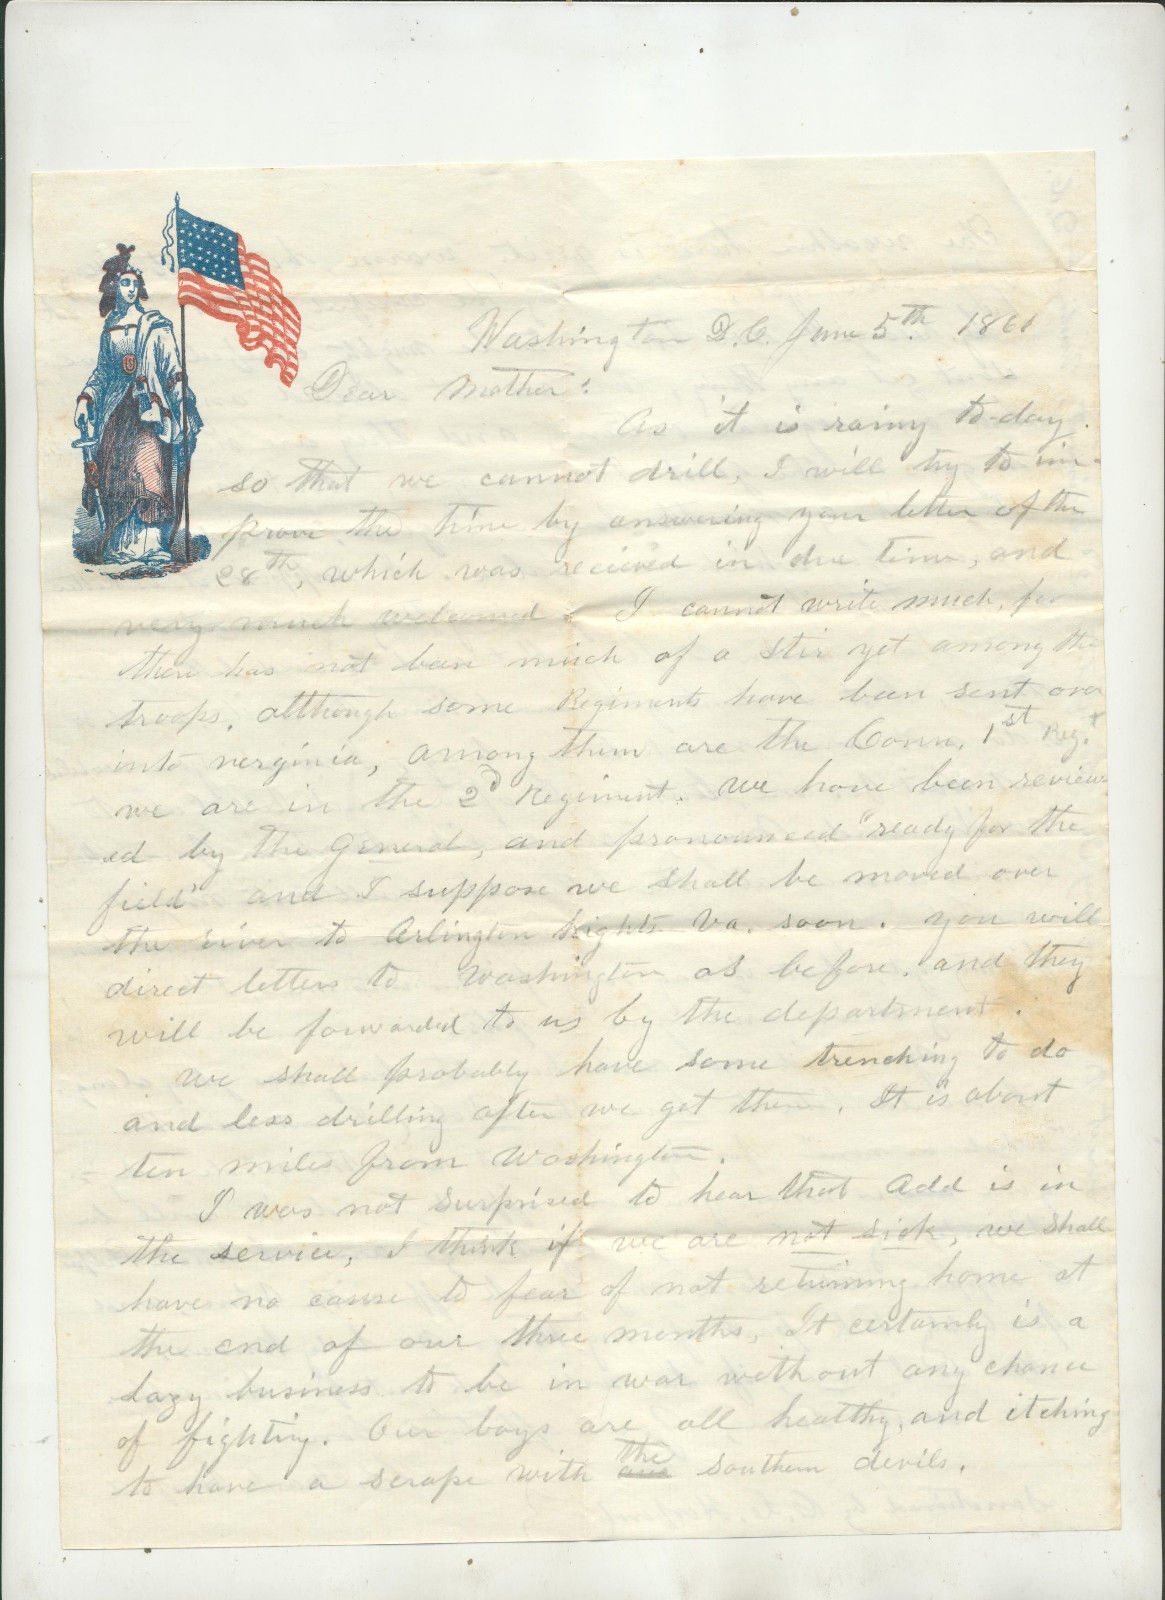 Washington D.C. June 5th. 1861
Dear Mother:
As it is rainy to-day.
so that we cannot drill, I will try to im-
prove the time by answering your letter of the
28th, which was recieved in due time, and
very much welcomed. I cannot write much, for
there has not been much of a stir yet among the
troops, although some Regiments have been sent over
into verginia, among them are the Conn. 1st Regt
we are in the 2d Regiment. We have been review
ed by the General, and pronounced "ready for the
field" and I suppose we shall be moved over
the river to Arlington hights Va. soon. you will
direct letters to Washington as before, and they
will be forwarded to us by the department.
we shall probably have some trenching to do
and less drilling after we get there. It is about
ten miles from Washington.
I was not surprised to hear that Add is in
the service, I think if we are not sick, we shall
have no cause to fear of not returning home at
the end of our three months, It certainly is a
lazy business to be in war without any chance
of fighting. Our boys are all healthy, and itching
to have a scrape with the southern devils.